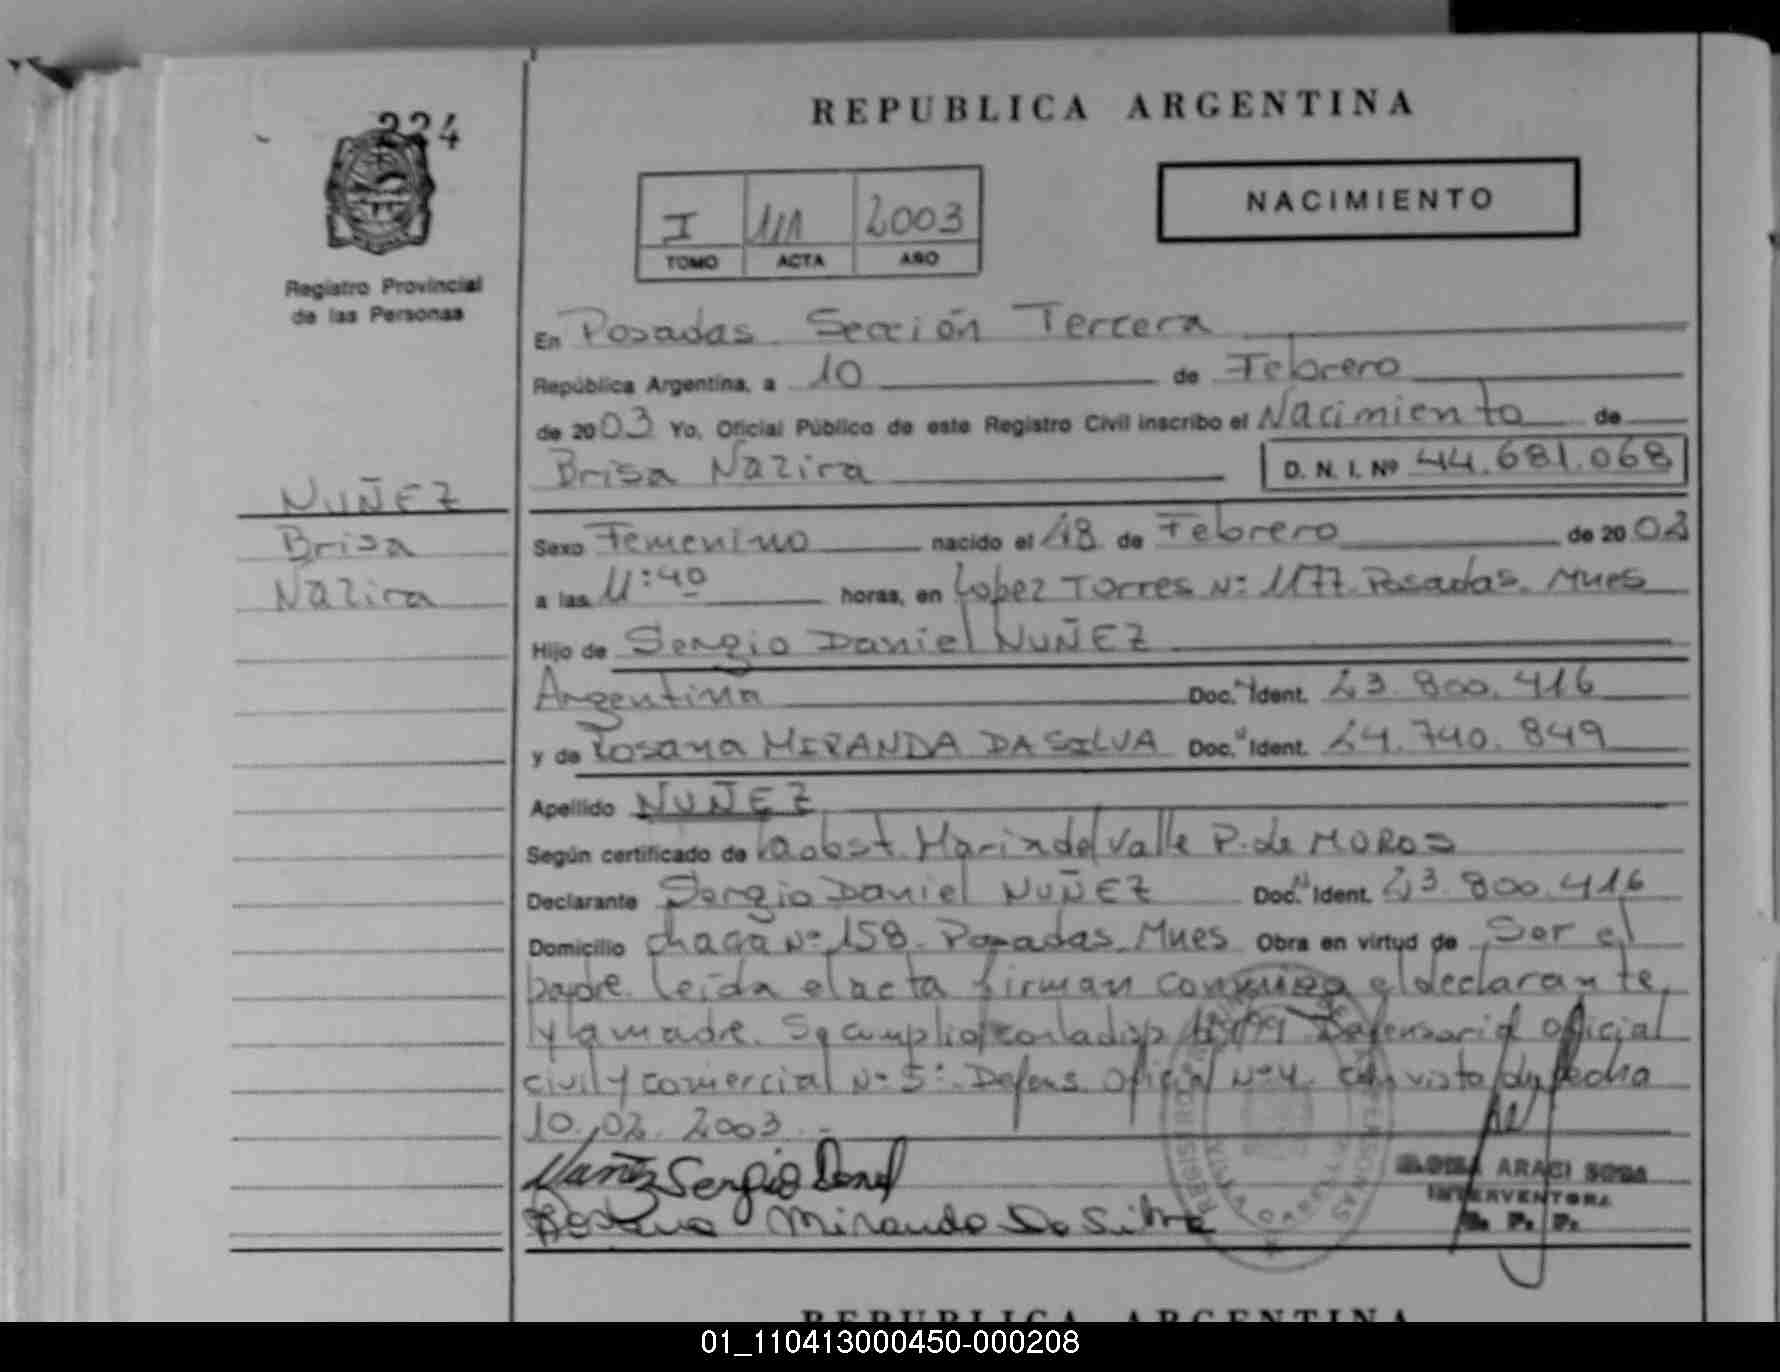 224
REPUBLICA ARGENTINA
NACIMIENTO
I 111 2003
TOMO ACTA AÑO
Registro Provincial
de las Personas
En Posadas Sección Tercera
República Argentina, a 10 de Febrero
de 2003 Yo, Oficial Público de este Registro Civil inscribo el Nacimiento de
Brisa Nazira D. N. I. Nº 44.681.068
NUÑEZ
Brisa
Nazira
Sexo Femenino nacido el de Febrero de 20
a las 11:40 horas, en Lopez Torres Nº 1177. Posadas. Mnes
Hijo de Sergio Daniel NUÑEZ
Argentina Doc. Ident. 23.800.416
y de Rosana MIRANDA DA SILVA Doc. Ident. 24.740.849
Apellido NUÑEZ
Según certificado de la obst. Maria del Valle P. de MOROS
Declarante Sergio Daniel NUÑEZ Doc. Ident. 23.800.416
Domicilio chaca Nº 158. Posadas. Mnes Obra en virtud de Ser el
padre. leída el acta firman conmigo el declarante
y la madre. Se cumplio con la disp Defensoria Oficial
civil y comercial Nº 5. Defens. Oficial Nº 4. con visto de fecha
10.02.2003
Nuñez Sergio Daniel
Rosana Miranda Da Silva
ARACI SOSA
INTERVENTORA
R. P. P.
REPUBLICA ARGENTINA
01_110413000450-000208